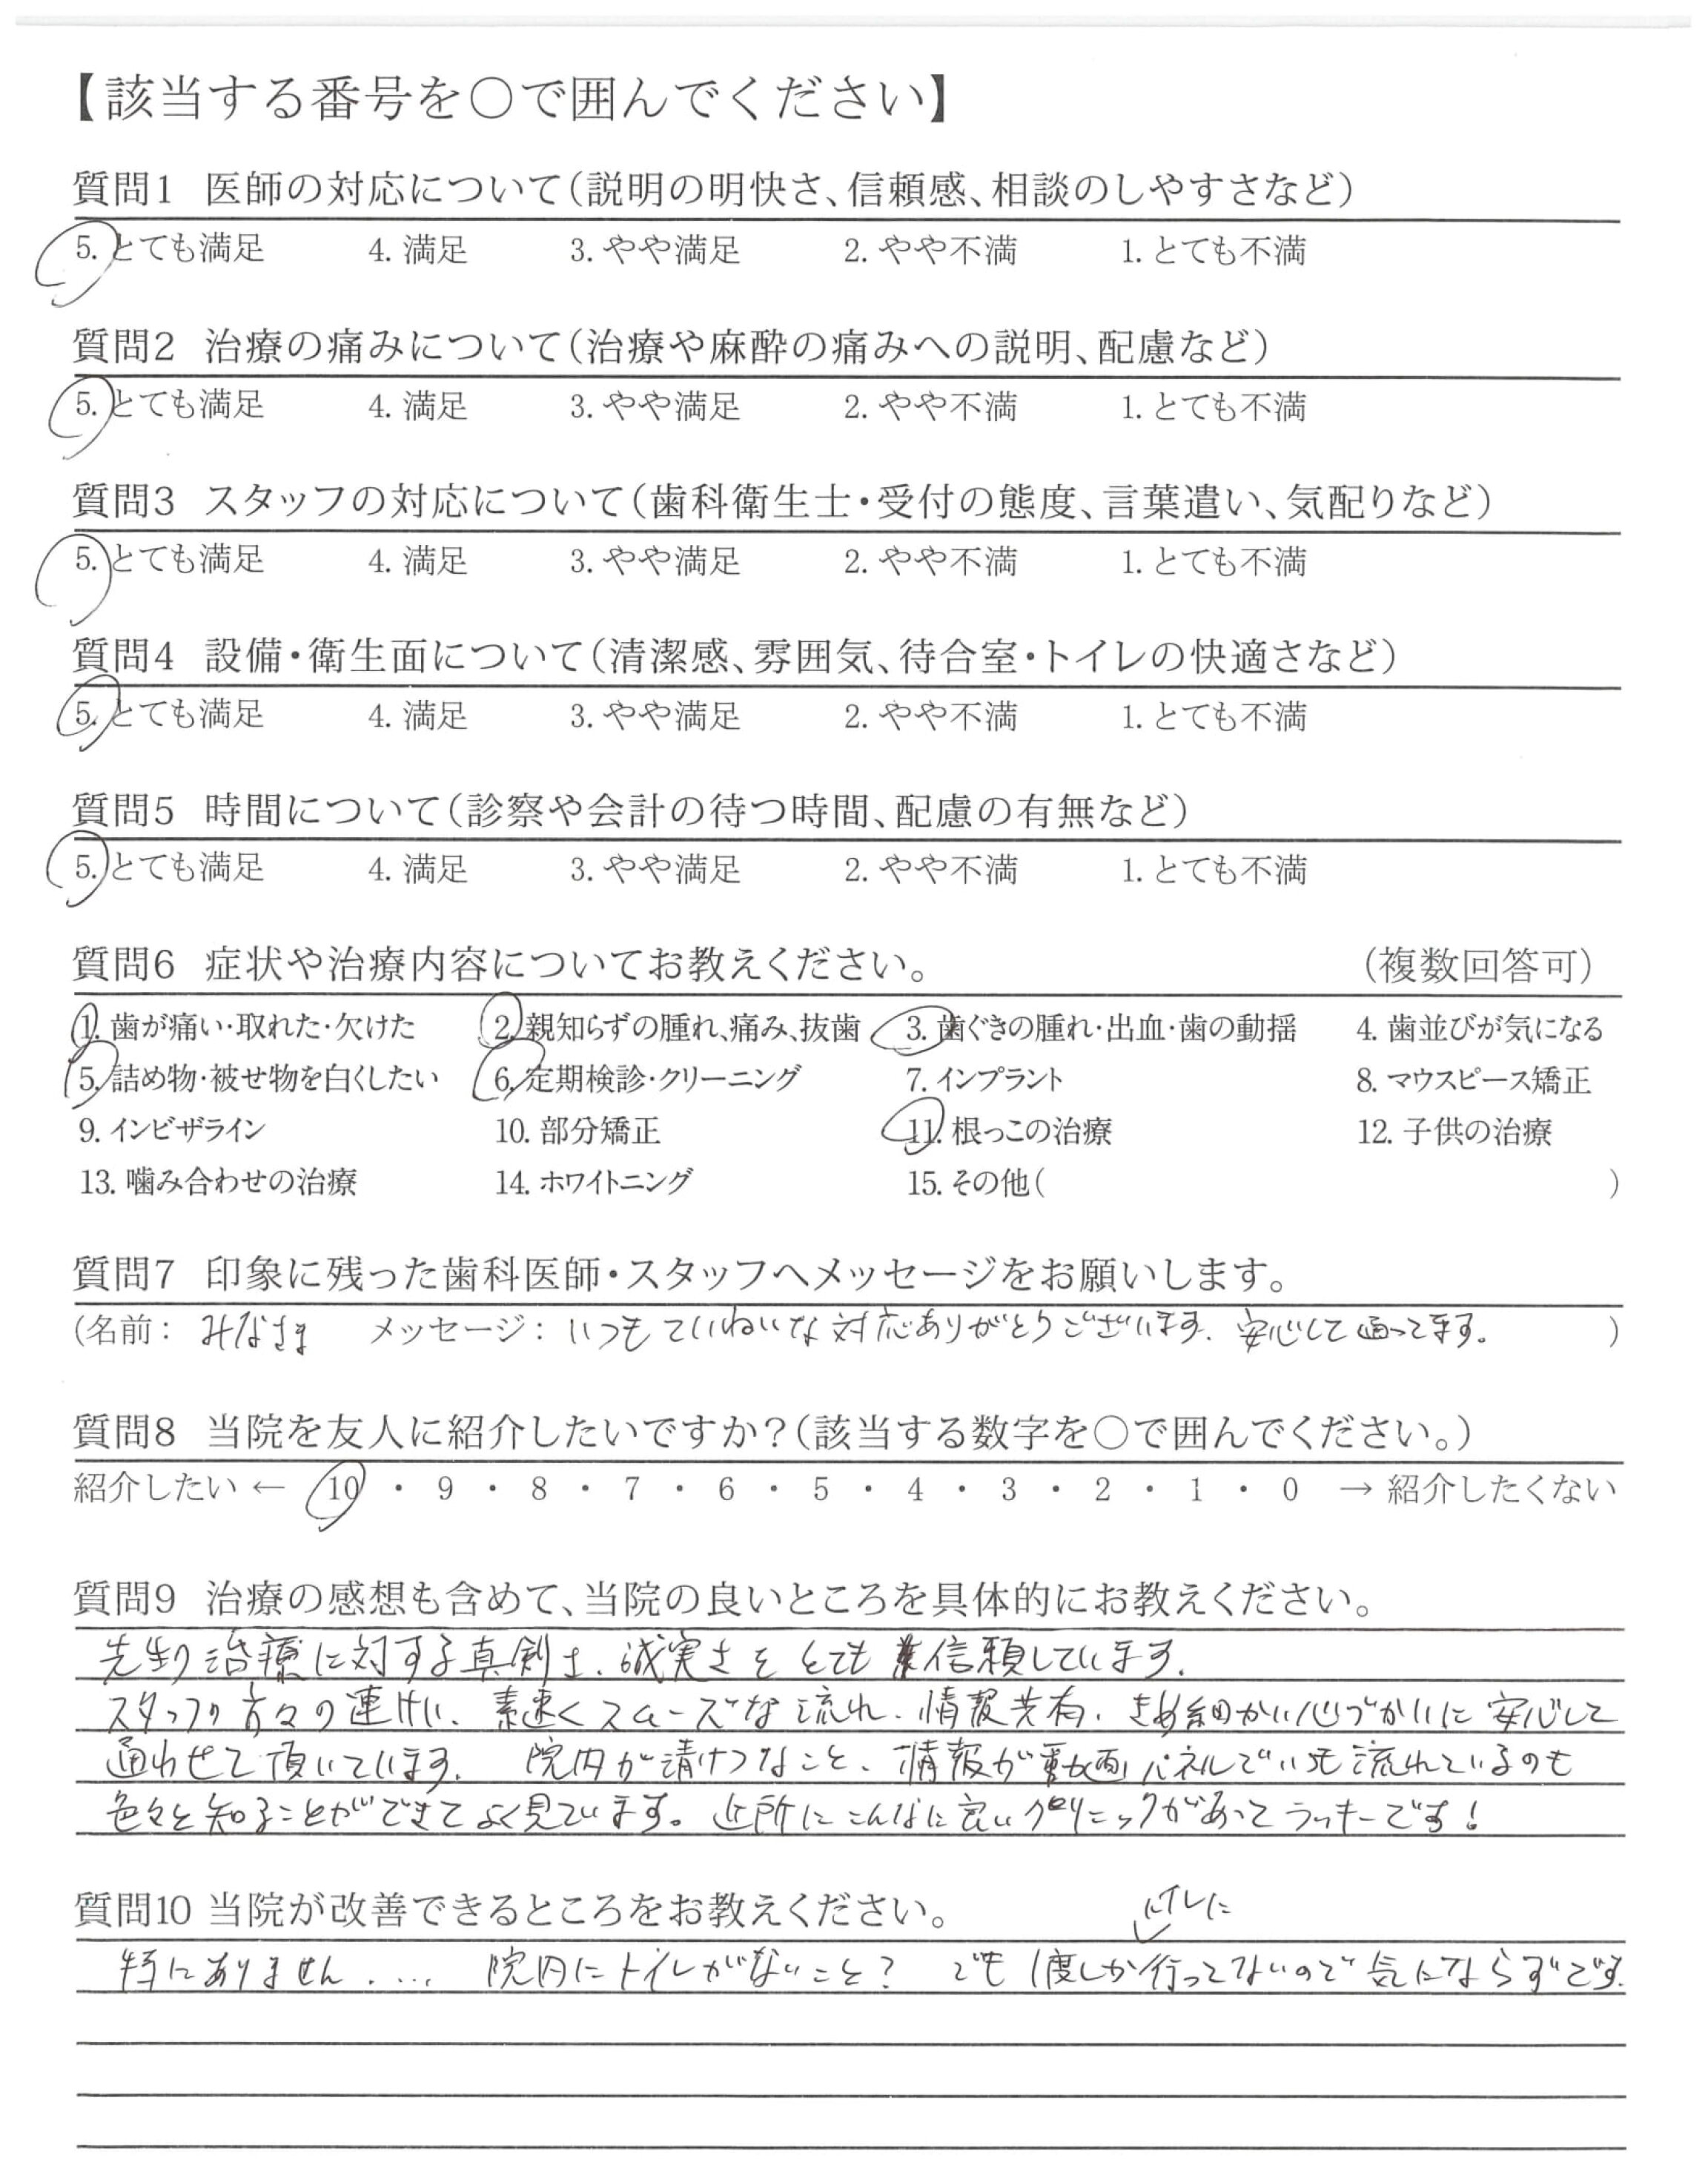 【該当する番号を○で囲んでください】
質問1 医師の対応について(説明の明快さ、信頼感、相談のしやすさなど)
5. とても満足 4. 満足 3. やや満足 2. やや不満 1. とても不満
質問2 治療の痛みについて(治療や麻酔の痛みへの説明、配慮など)
5. とても満足 4. 満足 3. やや満足 2. やや不満 1. とても不満
質問3 スタッフの対応について(歯科衛生士・受付の態度、言葉遣い、気配りなど)
5. とても満足 4. 満足 3. やや満足 2. やや不満 1. とても不満
質問4 設備・衛生面について(清潔感、雰囲気、待合室・トイレの快適さなど)
5. とても満足 4. 満足 3. やや満足 2. やや不満 1. とても不満
質問5 時間について(診察や会計の待つ時間、配慮の有無など)
5. とても満足 4. 満足 3. やや満足 2. やや不満 1. とても不満
質問6 症状や治療内容についてお教えください。 (複数回答可)
1. 歯が痛い・取れた・欠けた 2. 親知らずの腫れ、痛み、抜歯 3. 歯ぐきの腫れ・出血・歯の動揺 4. 歯並びが気になる
5. 詰め物・被せ物を白くしたい 6. 定期検診・クリーニング 7. インプラント 8. マウスピース矯正
9. インビザライン 10. 部分矯正 11. 根っこの治療 12. 子供の治療
13. 噛み合わせの治療 14. ホワイトニング 15. その他( )
質問7 印象に残った歯科医師・スタッフへメッセージをお願いします。
(名前: みなさま メッセージ: いつもていねいな対応ありがとうございます. 安心して通ってます。 )
質問8 当院を友人に紹介したいですか?(該当する数字を○で囲んでください。)
紹介したい ← 10 ・ 9 ・ 8 ・ 7 ・ 6 ・ 5 ・ 4 ・ 3 ・ 2 ・ 1 ・ 0 → 紹介したくない
質問9 治療の感想も含めて、当院の良いところを具体的にお教えください。
先生の治療に対する真剣さ、誠実さをとても信頼しています.
スタッフの方々の連けい、素速くスムーズな流れ、情報共有、きめ細かい心づかいに安心して
通わせて頂いています. 院内が清けつなこと、情報が動画パネルでいつも流れているのも
色々と知ることができてよく見ています。近所にこんなに良いクリニックがあってラッキーです!
質問10 当院が改善できるところをお教えください。
トイレに
特にありません.... 院内にトイレがないこと? でも1度しか行ってないので気にならずです.